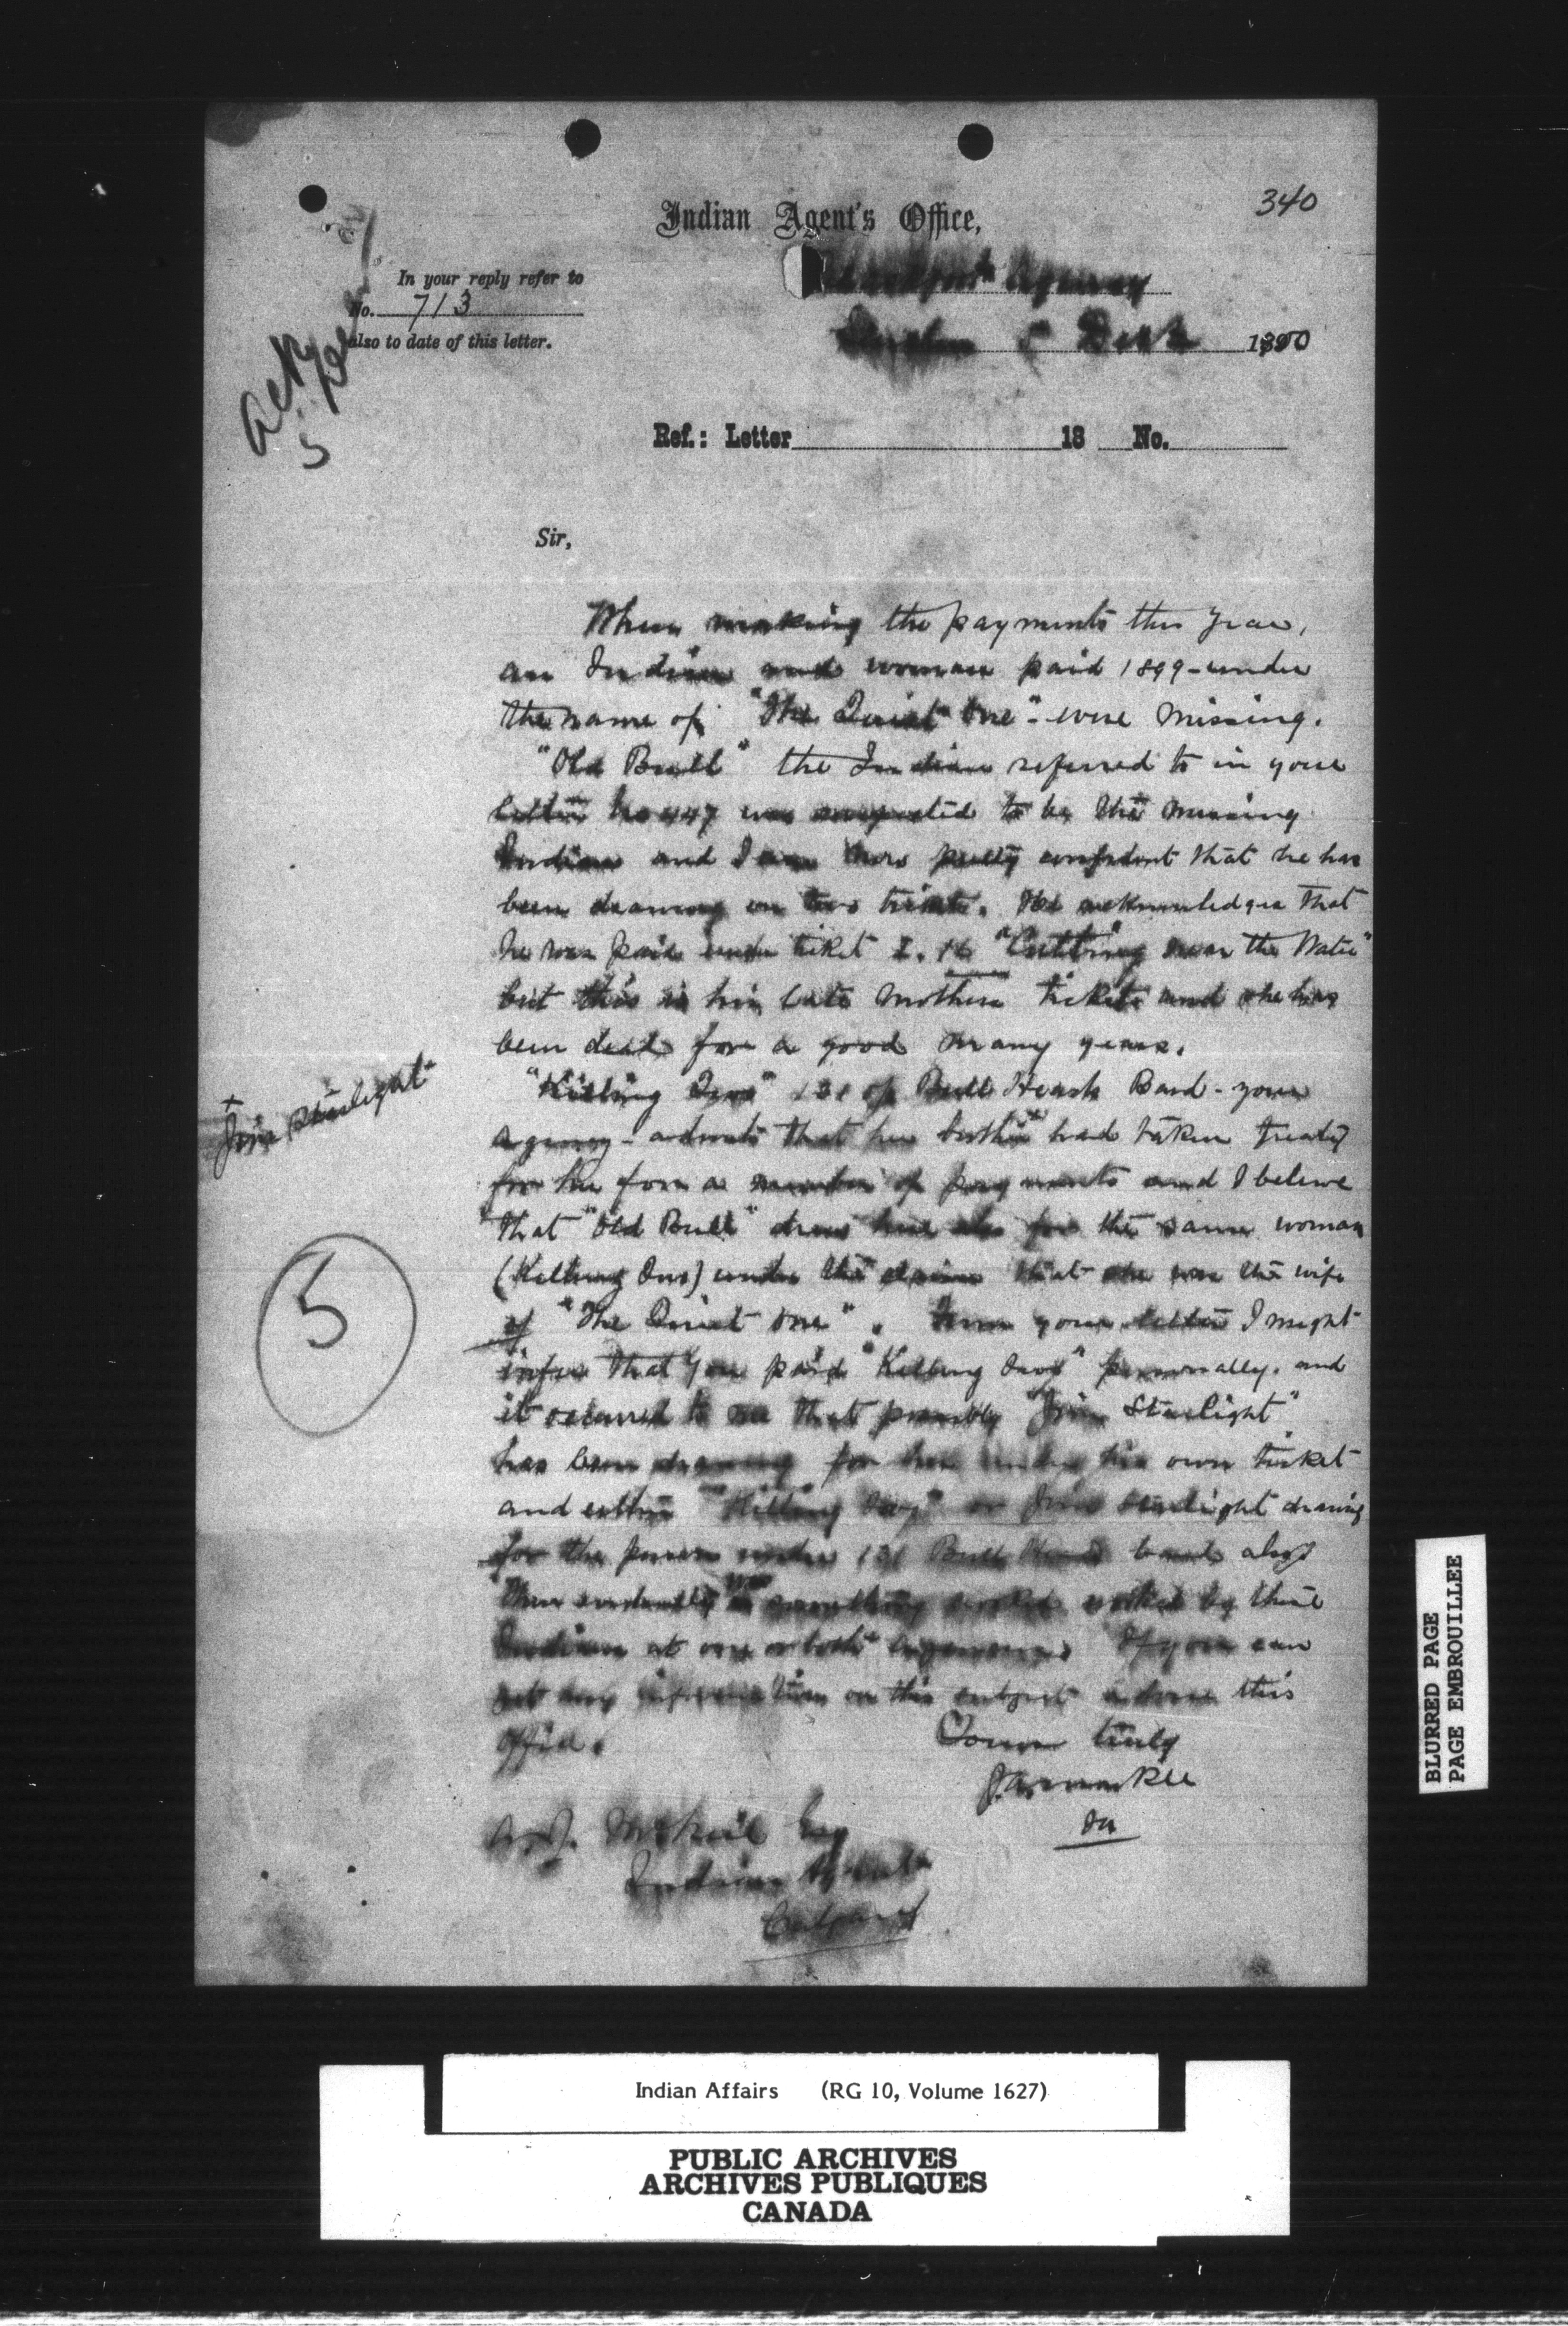 340
Indian Agent's Office,
In your reply refer to
No. 713
also to date of this letter.
Agency
1900
Ref.: Letter 18 No.
Sir,
When making the payments this year,
an Indian and woman paid 1899 - under
the name of "The Quiet One" - were missing.
"Old Bull" the Indian referred to in your
letter No 447 was suspected to be the missing
Indian and I am now pretty confident that he has
been drawing on two tickets. He acknowledges that
he was paid under ticket 16 "Cutting near the Water"
but this is his late mothers ticket and she has
been dead for a good many years.
"Killing 131 of Bull Heads Band - your
agency - admits that her had taken treaty
for her for a number of payments and I believe
that "Old Bull" drew here also for the same woman
(Killing ) under the claim that she was the wife
of "The Quiet One". From your letter I might
infer that you paid "Killing personally. and
it occurred to me that possibly "Jim Starlight"
has been drawing for her under his own ticket
and either "Killing or Jim Starlight drawing
for the person under 131 Bull Head band also
evidently something worked by these
Indians at one or both agencies If you can
get any information on this subject advise this
Office.
Yours truly
A.J. McNeil Esq
Indian Agent
Calgary
+
Jim Starlight
5
BLURRED PAGE
PAGE EMBROUILLEE
Indian Affairs (RG 10, Volume 1627)
PUBLIC ARCHIVES
ARCHIVES PUBLIQUES
CANADA